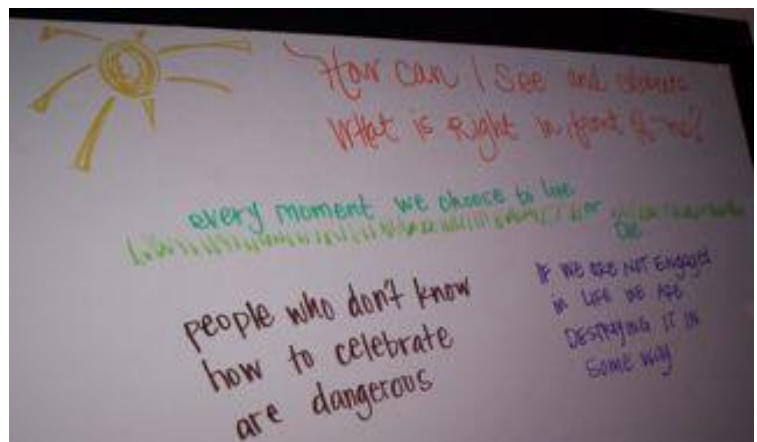 How can I See and observe
What is Right in front of me?
every moment we choose to live
or
Die
people who don't know
how to celebrate
are dangerous
If WE ARE NOT Engaged
in LIFE WE ARE
DESTROYING IT IN
Some way